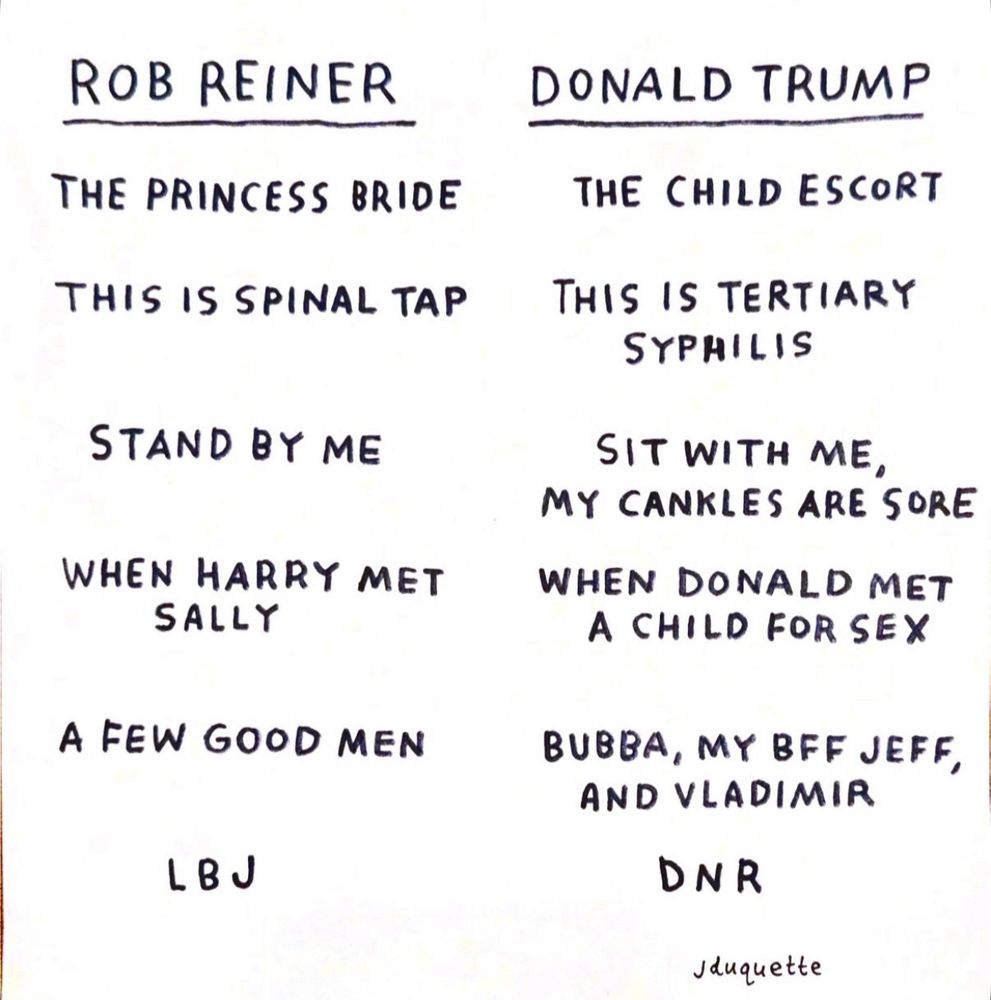 ROB REINER
THE PRINCESS BRIDE
THIS IS SPINAL TAP
STAND BY ME
WHEN HARRY MET
SALLY
A FEW GOOD MEN
LBJ
DONALD TRUMP
THE CHILD ESCORT
THIS IS TERTIARY
SYPHILIS
SIT WITH ME,
MY CANKLES ARE SORE
WHEN DONALD MET
A CHILD FOR SEX
BUBBA, MY BFF JEFF,
AND VLADIMIR
DNR
jduquette